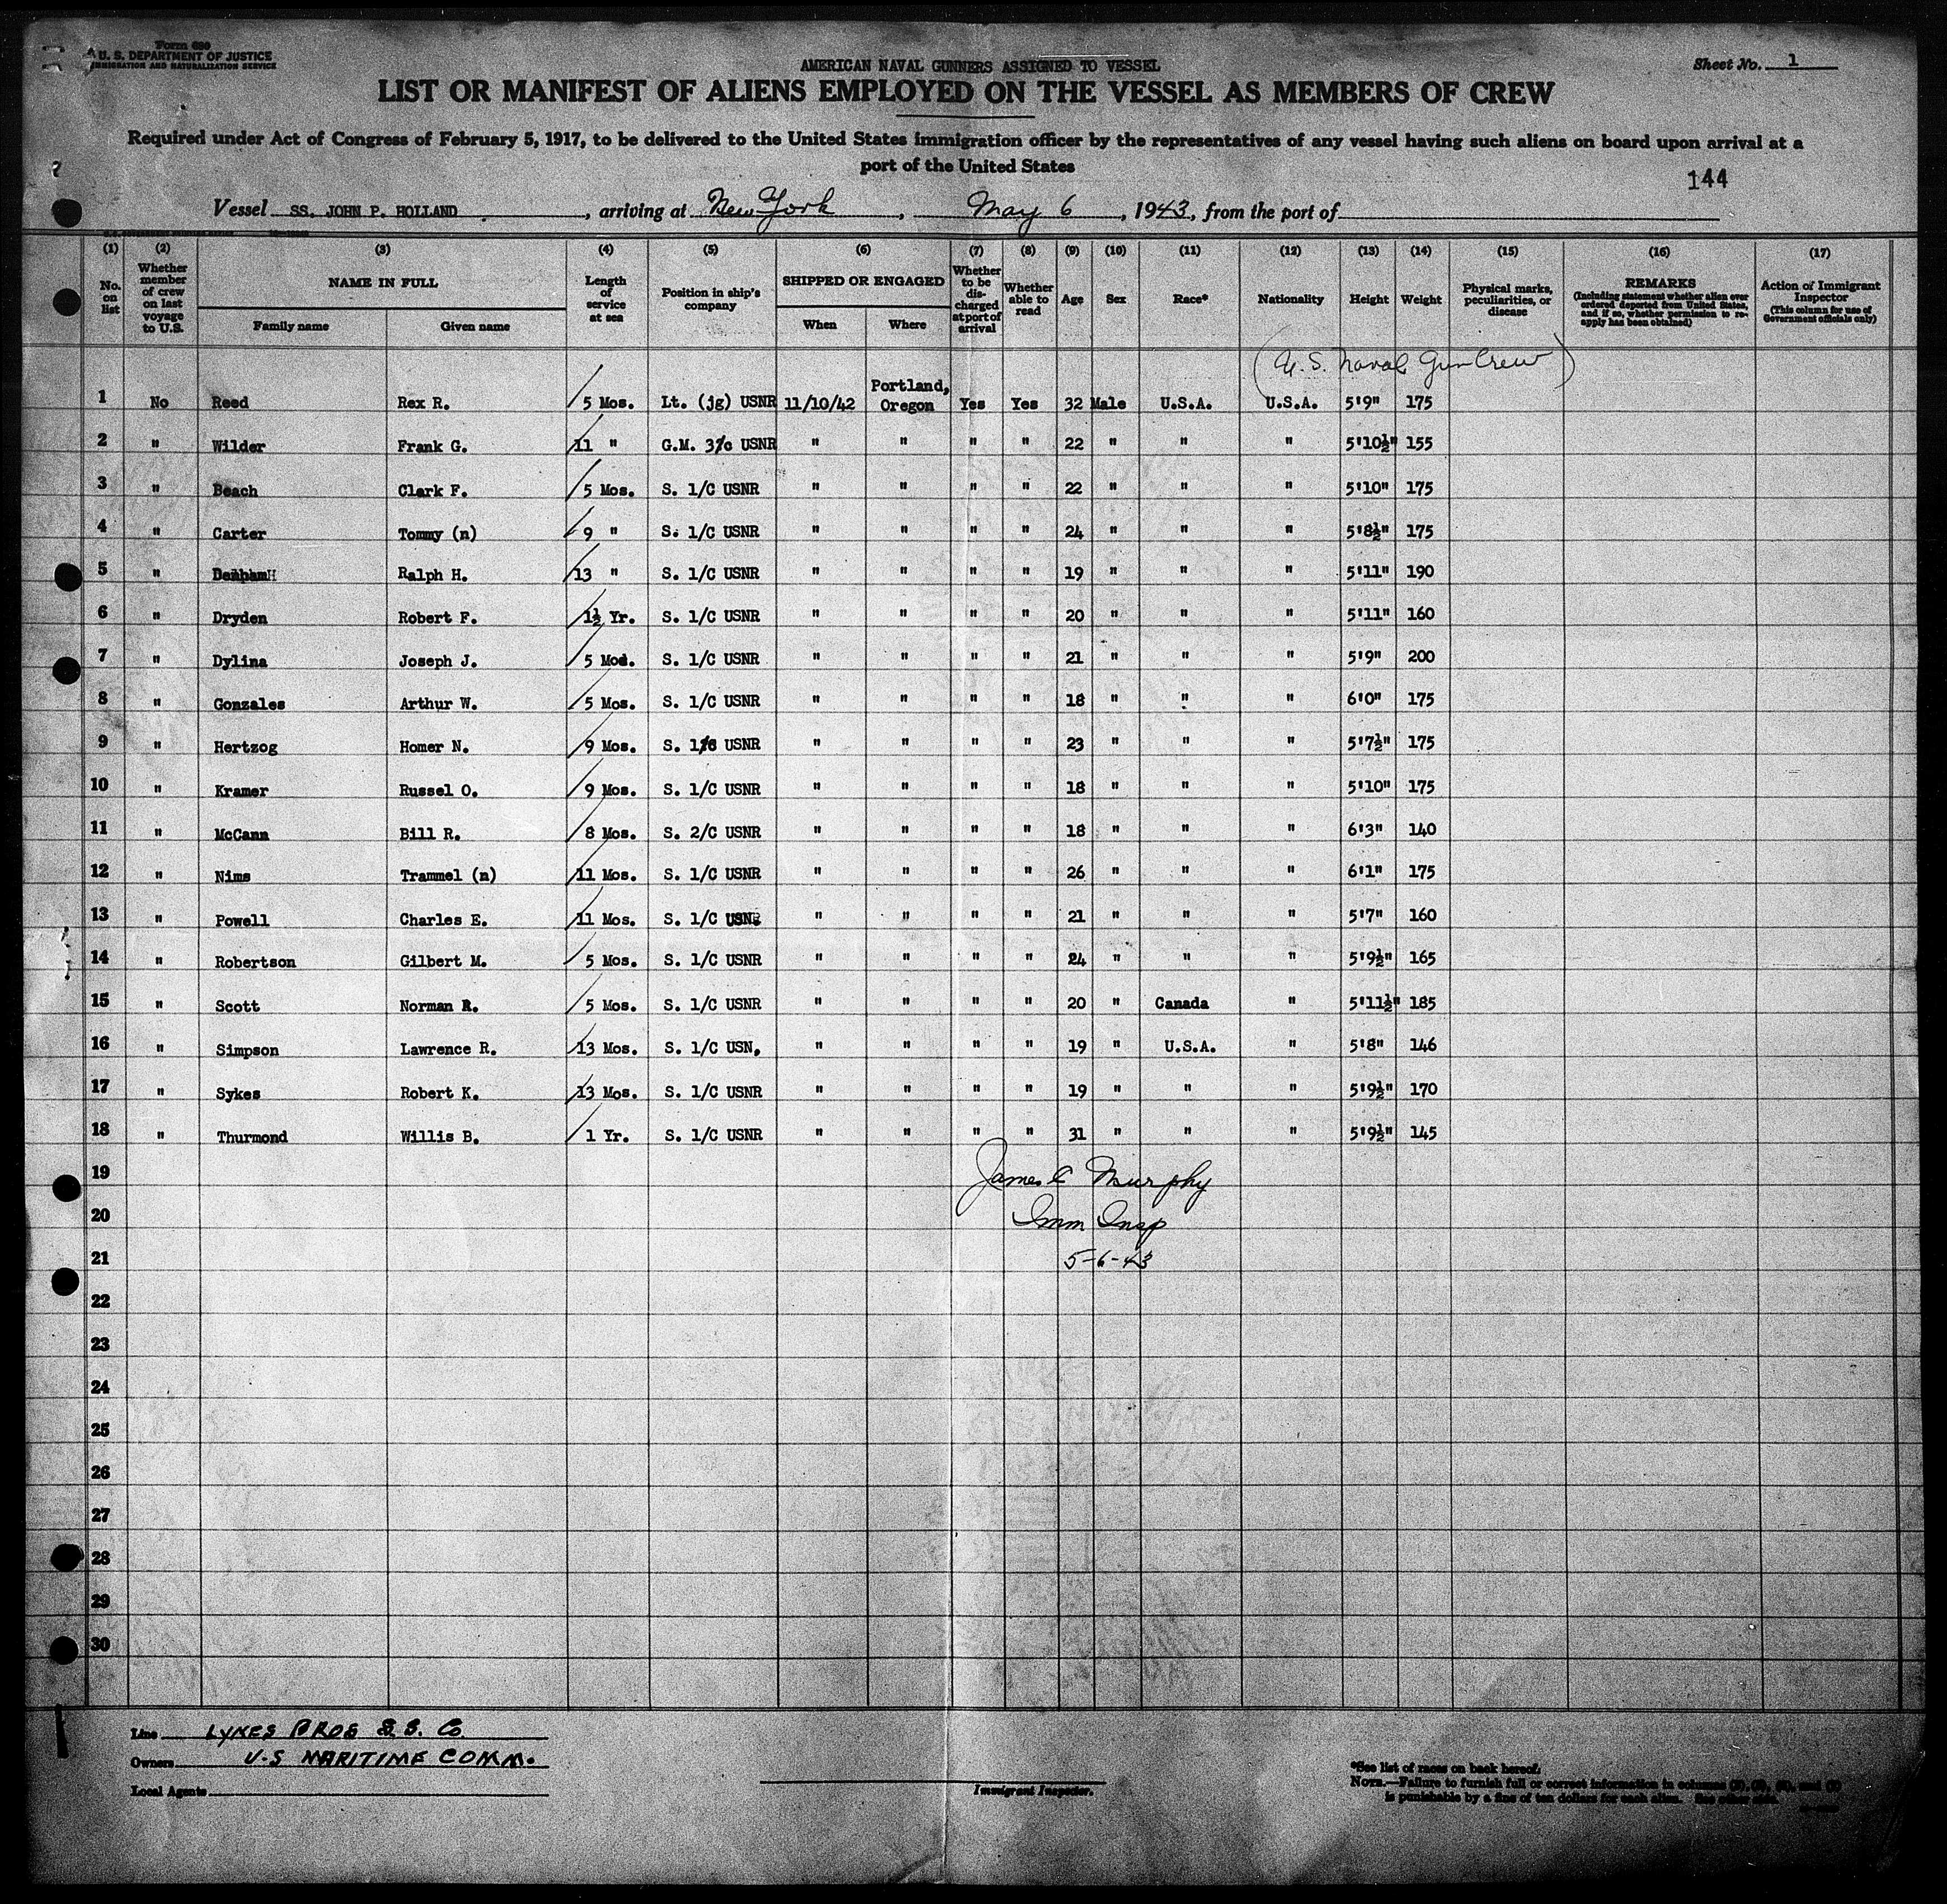 Form 680
U. S. DEPARTMENT OF JUSTICE
IMMIGRATION AND NATURALIZATION SERVICE
AMERICAN NAVAL GUNNERS ASSIGNED TO VESSEL
Sheet No. 1
LIST OR MANIFEST OF ALIENS EMPLOYED ON THE VESSEL AS MEMBERS OF CREW
Required under Act of Congress of February 5, 1917, to be delivered to the United States immigration officer by the representatives of any vessel having such aliens on board upon arrival at a
port of the United States
144
Vessel SS. JOHN P. HOLLAND, arriving at New York, May 6, 1943, from the port of
(1) (2) (3) (4) (5) (6) (7) (8) (9) (10) (11) (12) (13) (14) (15) (16) (17)
No. on list
Whether member of crew on last voyage to U.S.
NAME IN FULL
Family name Given name
Length of service at sea
Position in ship's company
SHIPPED OR ENGAGED
When Where
Whether to be discharged at port of arrival
Whether able to read
Age
Sex
Race*
Nationality
Height
Weight
Physical marks, peculiarities, or disease
REMARKS
(Including statement whether alien ever ordered deported from United States, and if so, whether permission to reapply has been obtained)
Action of Immigrant Inspector
(This column for use of Government officials only)
(U.S. Naval Gun Crew)
1 No Reed Rex R. 5 Mos. Lt. (jg) USNR 11/10/42 Portland, Oregon Yes Yes 32 Male U.S.A. U.S.A. 5'9" 175
2 " Wilder Frank G. 11 " G.M. 3/c USNR " " " " 22 " " " 5'10½" 155
3 " Beach Clark F. 5 Mos. S. 1/C USNR " " " " 22 " " " 5'10" 175
4 " Carter Tommy (n) 9 " S. 1/C USNR " " " " 24 " " " 5'8½" 175
5 " Ralph H. 13 " S. 1/C USNR " " " " 19 " " " 5'11" 190
6 " Dryden Robert F. 1½ Yr. S. 1/C USNR " " " " 20 " " " 5'11" 160
7 " Dylina Joseph J. 5 Mos. S. 1/C USNR " " " " 21 " " " 5'9" 200
8 " Gonzales Arthur W. 5 Mos. S. 1/C USNR " " " " 18 " " " 6'0" 175
9 " Hertzog Homer N. 9 Mos. S. 1/C USNR " " " " 23 " " " 5'7½" 175
10 " Kramer Russel O. 9 Mos. S. 1/C USNR " " " " 18 " " " 5'10" 175
11 " McCann Bill R. 8 Mos. S. 2/C USNR " " " " 18 " " " 6'3" 140
12 " Nims Trammel (n) 11 Mos. S. 1/C USNR " " " " 26 " " " 6'1" 175
13 " Powell Charles E. 11 Mos. S. 1/C USN. " " " " 21 " " " 5'7" 160
14 " Robertson Gilbert M. 5 Mos. S. 1/C USNR " " " " 24 " " " 5'9½" 165
15 " Scott Norman R. 5 Mos. S. 1/C USNR " " " " 20 " Canada " 5'11½" 185
16 " Simpson Lawrence R. 13 Mos. S. 1/C USN. " " " " 19 " U.S.A. " 5'8" 146
17 " Sykes Robert K. 13 Mos. S. 1/C USNR " " " " 19 " " " 5'9½" 170
18 " Thurmond Willis B. 1 Yr. S. 1/C USNR " " " " 31 " " " 5'9½" 145
19 James C Murphy
20 Imm Insp
21 5-6-43
22
23
24
25
26
27
28
29
30
Line LYKES BROS S.S. Co.
Owners U-S MARITIME COMM.
Local Agents
Immigrant Inspector.
*See list of races on back hereof.
NOTE.—Failure to furnish full or correct information in columns
is punishable by a fine of ten dollars for each alien. See other side.